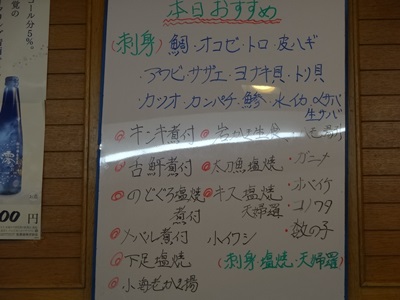 本日おすすめ
(刺身) 鯛・オコゼ・トロ・皮ハギ
アワビ・サザエ・ヨナキ貝・トリ貝
カツオ・カンパチ・鯵・水イカ・〆サバ
生サバ
キンキ煮付
岩かき生食
古鮮煮付
太刀魚塩焼
のどぐろ塩焼
煮付
キス塩焼
天婦羅
メバル煮付
小イワシ
(刺身・塩焼・天婦羅)
下足塩焼
小海老かき揚
・ガニミソ
・水バイケ
・コノワタ
・数の子
コール分5%。
00円